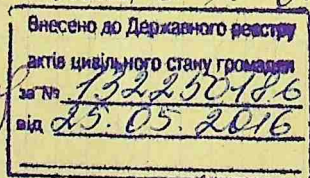 Внесено до Державного реєстру
актів цивільного стану громадян
за № 132250186
від 25.05.2016